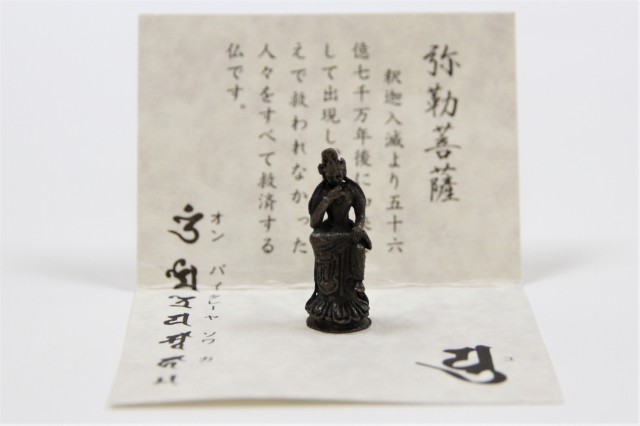 弥勒菩薩
釈迦入滅より五十六
億七千万年後に
して出現し
えで救われなかった
人々をすべて救済する
仏です。
オン バイタレーヤ ソワカ
ユ